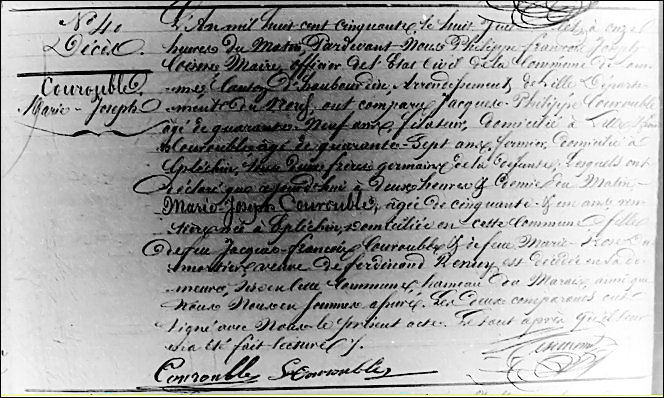 N° 40
Décès
Courouble,
Marie-Joseph
L'An mil huit cent cinquante, le huit Juillet, à onze
heures du Matin, Pardevant-Nous Philippe François Joseph
Maire, officier de l'Etat Civil de la Commune de
Canton d'haubourdin, Arrondissement de Lille Départe-
ment du Nord, ont comparu Jacques-Philippe Courouble
âgé de quarante-Neuf ans, filateur, Domicilié à Lille &
Courouble âgé de quarante-Sept ans, fermier, Domicilié à
Esplechin, tous deux frères germains de la Défunte, lesquels ont
déclaré que aujourd'hui à deux heures & Demie du Matin,
Marie-Joseph Courouble, âgée de cinquante & un ans, ren-
tière, née à Esplechin, domiciliée en cette Commune, fille
de feu Jacques-françois Courouble & de feu Marie-
veuve de ferdinand est décédée en sa de-
meure, sise en cette Commune, hameau du Marais, ainsi que
Nous Nous en sommes assuré. Les deux comparans ont
signé avec Nous le présent acte. Le tout après qu'il leur
en a été fait lecture.
Courouble Courouble